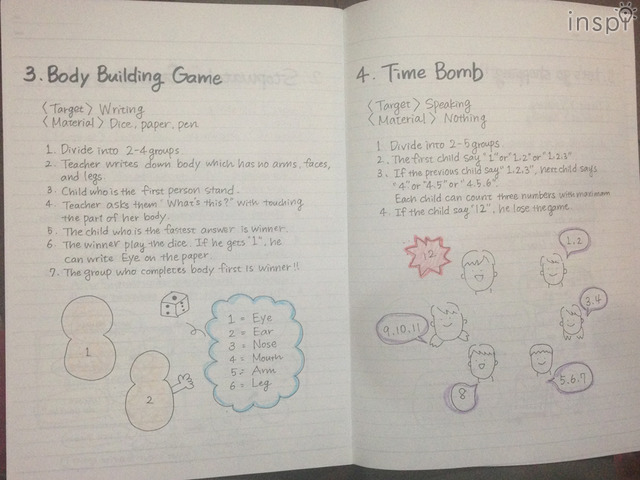 inspi
3. Body Building Game
< Target > Writing
< Material > Dice, paper, pen
1. Divide into 2-4 groups.
2. Teacher writes down body which has no arms, faces,
and legs.
3. Child who is the first person stand.
4. Teacher asks them "What's this?" with touching
the part of her body.
5. The child who is the fastest answer is winner.
6. The winner play the dice. If he gets "1", he
can write Eye on the paper.
7. The group who completes body first is winner!!
1
2
1 = Eye
2 = Ear
3 = Nose
4 = Mouth
5 = Arm
6 = Leg
4. Time Bomb
< Target > Speaking
< Material > Nothing
1. Divide into 2-5 groups.
2. The first child say "1" or "1.2" or "1.2.3"
3. If the previous child say "1.2.3", next child says
"4" or "4.5" or "4.5.6".
Each child can count three numbers with maximam
4. If the child say "12", he lose the game.
12
1.2
3.4
9.10.11
5.6.7
8